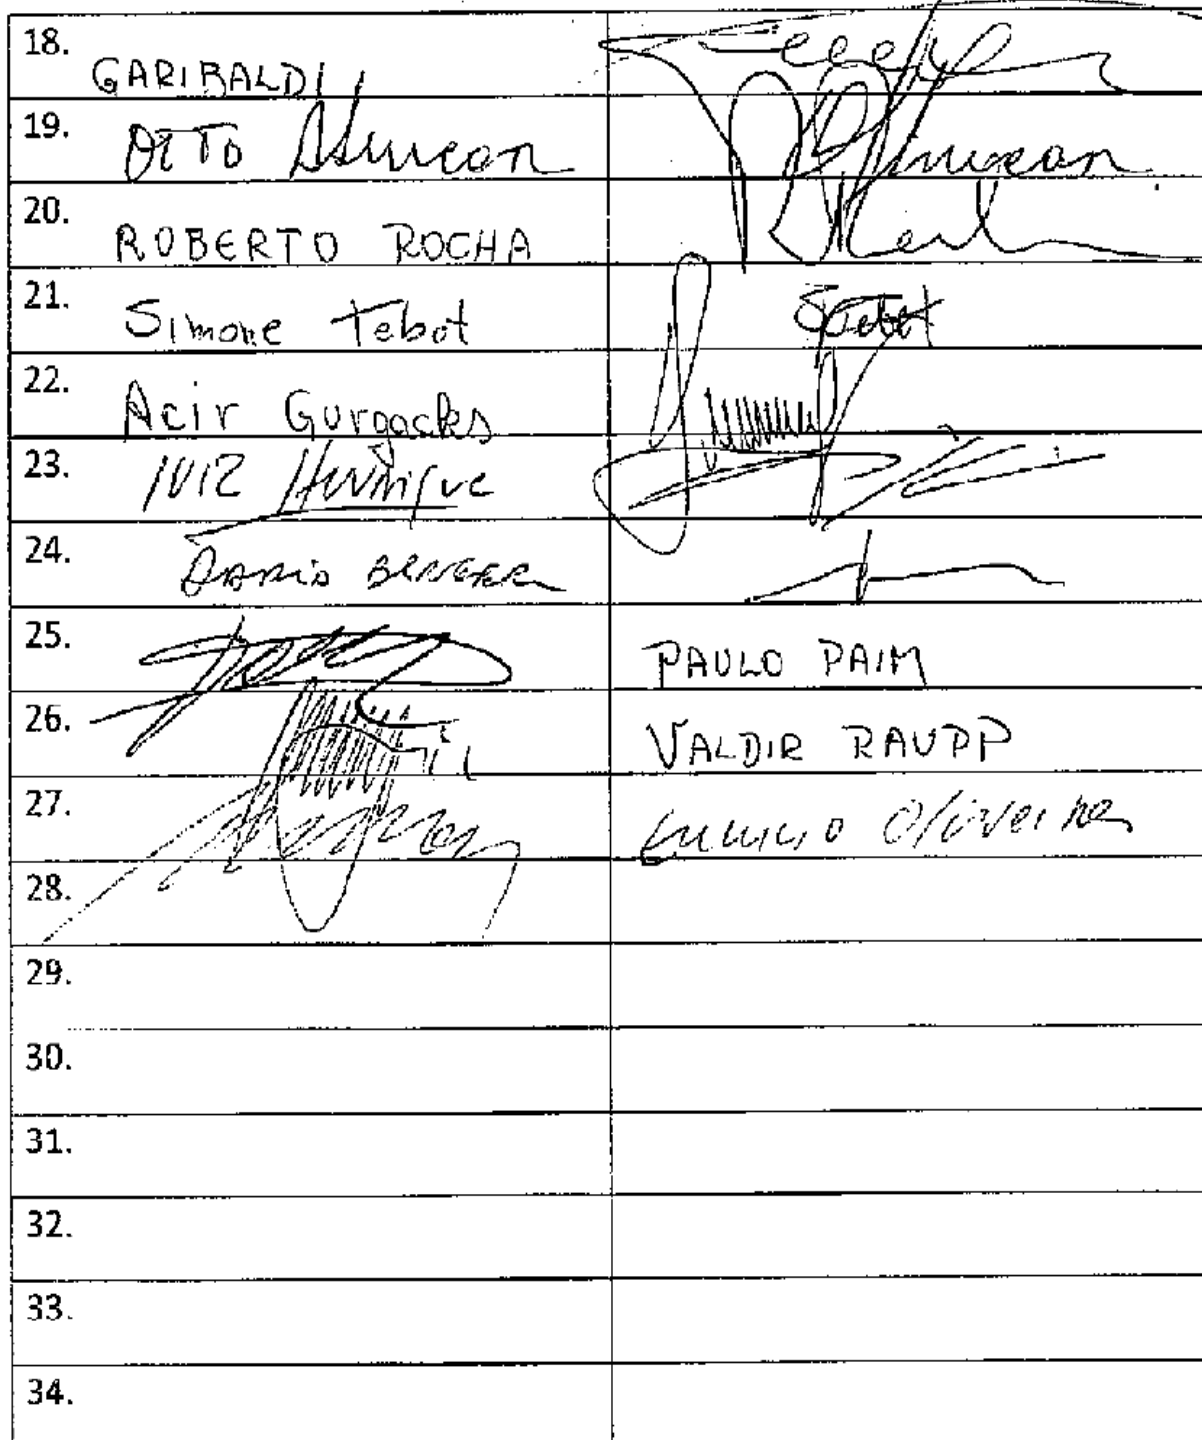 18. GARIBALDI
19. OTTO Alencar Alencar
20. ROBERTO ROCHA
21. Simone Tebet STebet
22. Acir Gurgacks
23. LUIZ Henrique
24. DARIO BERGER
25. PAULO PAIM
26. VALDIR RAUPP
27. Eunício Oliveira
28.
29.
30.
31.
32.
33.
34.